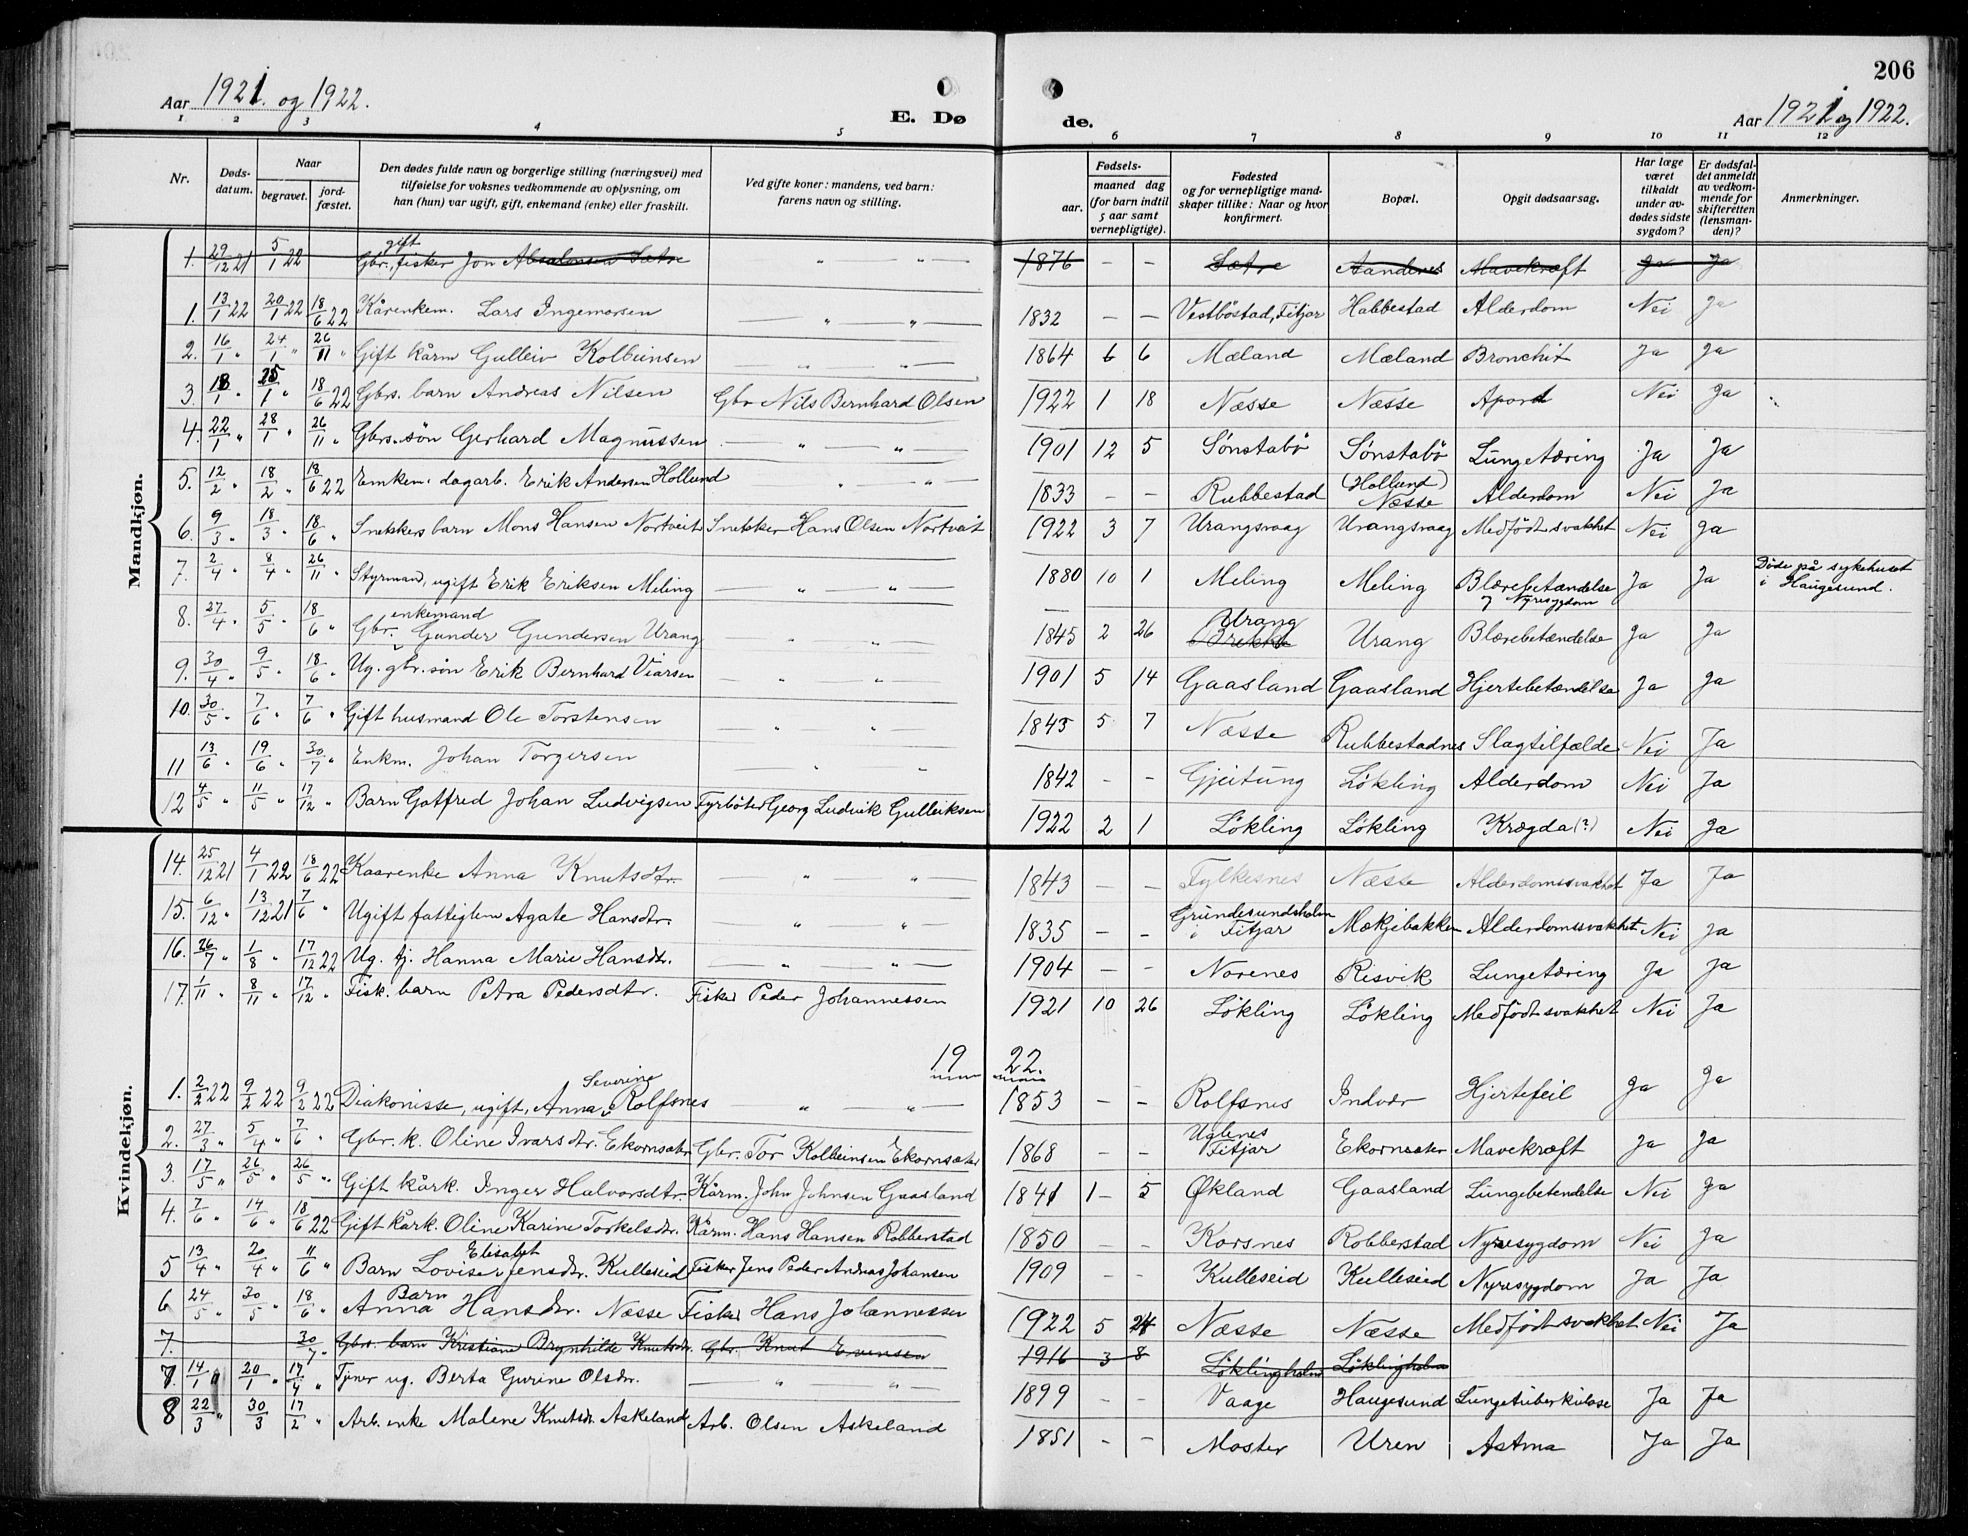 206
Aar 1921. og 1922.
E. Dø de.
Aar 1921 og 1922.
1 2 3 4 5 6 7 8 9 10 11 12
Nr.
Døds-datum.
Naar
begravet.
jord-fæstet.
Den dødes fulde navn og borgerlige stilling (næringsvei) med
tilføielse for voksnes vedkommende av oplysning, om
han (hun) var ugift, gift, enkemand (enke) eller fraskilt.
Ved gifte koner: mandens, ved barn:
farens navn og stilling.
Fødsels-
aar.
maaned dag
(for barn indtil
5 aar samt
vernepligtige).
Fødested
og for vernepligtige mand-
skaper tillike: Naar og hvor
konfirmert.
Bopæl.
Opgit dødsaarsag.
Har læge
været
tilkaldt
under av-
dødes sidste
sygdom?
Er dødsfal-
det anmeldt
av vedkom-
mende for
skifteretten
(lensman-
den)?
Anmerkninger.
Mandkjøn.
1. 29/12 21 5/1 22 Gbr., gift fisker Jon Absalonsen Sætre " " 1876 – – Sætre Aandenes Mavekræft Ja Ja
1. 13/1 22 20/1 22 18/6 22 Kårenkem. Lars Ingemorsen " " 1832 – – Vestbøstad, Fitjar Habbestad Alderdom Nei Ja
2. 16/1 " 24/1 " 26/11 " Gift kårm Gulleiv Kolbeinsen " " 1864 6 6 Mæland Mæland Bronchit Ja Ja
3. 18/1 " 25/1 " 18/6 22 Gbrs. barn Andreas Nilsen Gbr Nils Bernhard Olsen 1922 1 18 Næsse Næsse Nei Ja
4. 22/1 " 28/1 " 26/11 " Gbrs. søn Gerhard Magnussen " " 1901 12 5 Sønstabø Sønstabø Lungetæring Ja Ja
5. 12/2 " 18/2 " 18/6 22 Emkem. dagarb. Erik Andersen Hollund " " 1833 – – Rubbestad (Hollund) Næsse Alderdom Nei Ja
6. 9/3 " 18/3 " 18/6 " Snekkers barn Mons Hansen Nortveit Snekker Hans Olsen Nortveit 1922 3 7 Urangsvaag Urangsvaag Medfødt svakhet Nei Ja
7. 2/4 " 8/4 " 26/11 " Styrmand, ugift Erik Eriksen Meling " " 1880 10 1 Meling Meling Blærebetændelse og Nyresygdom Ja Ja Døde på sykehuset i Haugesund.
8. 27/4 " 5/5 " 18/6 " Gbr. enkemand Gunder Gundersen Urang " " 1845 2 26 Urang Urang Blærebetændelse Ja Ja
9. 30/4 " 9/5 " 18/6 " Ug. gbr. søn Erik Bernhard Viarsen " " 1901 5 14 Gaasland Gaasland Hjertebetændelse Ja Ja
10. 30/5 " 7/6 " 7/6 " Gift husmand Ole Torstensen " " 1845 5 7 Næsse Rubbestadnes Slagtilfælde Nei Ja
11 13/6 " 19/6 " 30/7 " Enkm. Johan Torgersen " " 1842 – – Gjeitung Løkling Alderdom Nei Ja
12 4/5 " 11/5 " 17/12 " Barn Gotfred Johan Ludvigsen Fyrbøter Georg Ludvik Gulleiksen 1922 2 1 Løkling Løkling Krægda (?) Nei Ja
Kvindekjøn.
14. 25/12 21 4/1 22 18/6 22 Kaarenke Anna Knutsdtr. " " 1843 – – Fylkesnes Næsse Alderdomssvakhet Ja Ja
15. 6/12 " 13/12 21 7/6 " Ugift fattiglem Agate Hansdtr. " " 1835 – – Grundesundsholm i Fitjar Mækjebakken Alderdomssvakhet Nei Ja
16. 26/7 " 1/8 " 17/12 22 Ug. tj. Hanna Marie Hansdtr. " " 1904 – – Norenes Risvik Lungetæring Ja Ja
17. 1/11 " 8/11 " 17/12 " Fisk. barn Petra Pedersdtr. Fisker Peder Johannessen 1921 10 26 Løkling Løkling Medfødt svakhet Nei Ja
19 22.
1. 2/2 22 9/2 22 9/2 22 Diakonisse, ugift, Anna Severine Rolfsnes " " 1853 – – Rolfsnes Indvær Hjertefeil Ja Ja
2. 27/3 " 5/4 " 7/6 " Gbr. k. Oline Ivarsdtr. Ekornsæter Gbr. Tor Kolbeinsen Ekornsæter 1868 – – Uglenes Fitjar Ekornsæter Mavekræft Ja Ja
3. 17/5 " 26/5 " 26/5 " Gift kårk. Inger Halvorsdtr. Kårm. John Johnsen Gaasland 1841 1 – 5 Økland Gaasland Lungebetendelse Nei Ja
4. 7/6 " 14/6 " 18/6 22 Gift kårk. Oline Karine Torkelsdtr. Kårm. Hans Hansen Robberstad 1850 – – Korsnes Robberstad Nyresygdom Nei Ja
5 13/4 " 20/4 " 11/6 " Barn Lovise Elisabet Jensdtr. Kulleseid Fisker Jens Peder Andreas Johansen 1909 – – Kulleseid Kulleseid Nyresygdom Ja Ja
6 24/5 " 30/5 " 18/6 " Barn Anna Hansdtr. Næsse Fisker Hans Johannessen 1922 5 24 Næsse Næsse Medfødt svakhet Nei Ja
7. 30/7 " Gbr. barn Kristiane Brynhilde Knutsdr. Gbr. Knut Evensen 1916 3 8 Løklingholm Løklingholm
7. 14/1 " 20/1 " 17/4 " Tjner ug. Berta Gurine Olsdr. " " 1899 – – Vaage Haugesund Lungetuberkulose Ja Ja
8 22/3 " 30/3 " 17/2 " Arb. enke Malene Knutsdr. Askeland Arb. Olsen Askeland 1851 – – Moster Uren Astma Ja Ja